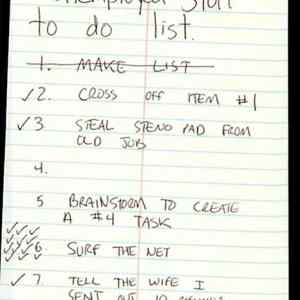 to do list.
1. MAKE LIST
✓2. CROSS OFF ITEM #1
✓3 STEAL STENO PAD FROM
OLD JOB
4.
5 BRAINSTORM TO CREATE
A #4 TASK
6 SURF THE NET
✓7. TELL THE WIFE I
SENT OUT 10